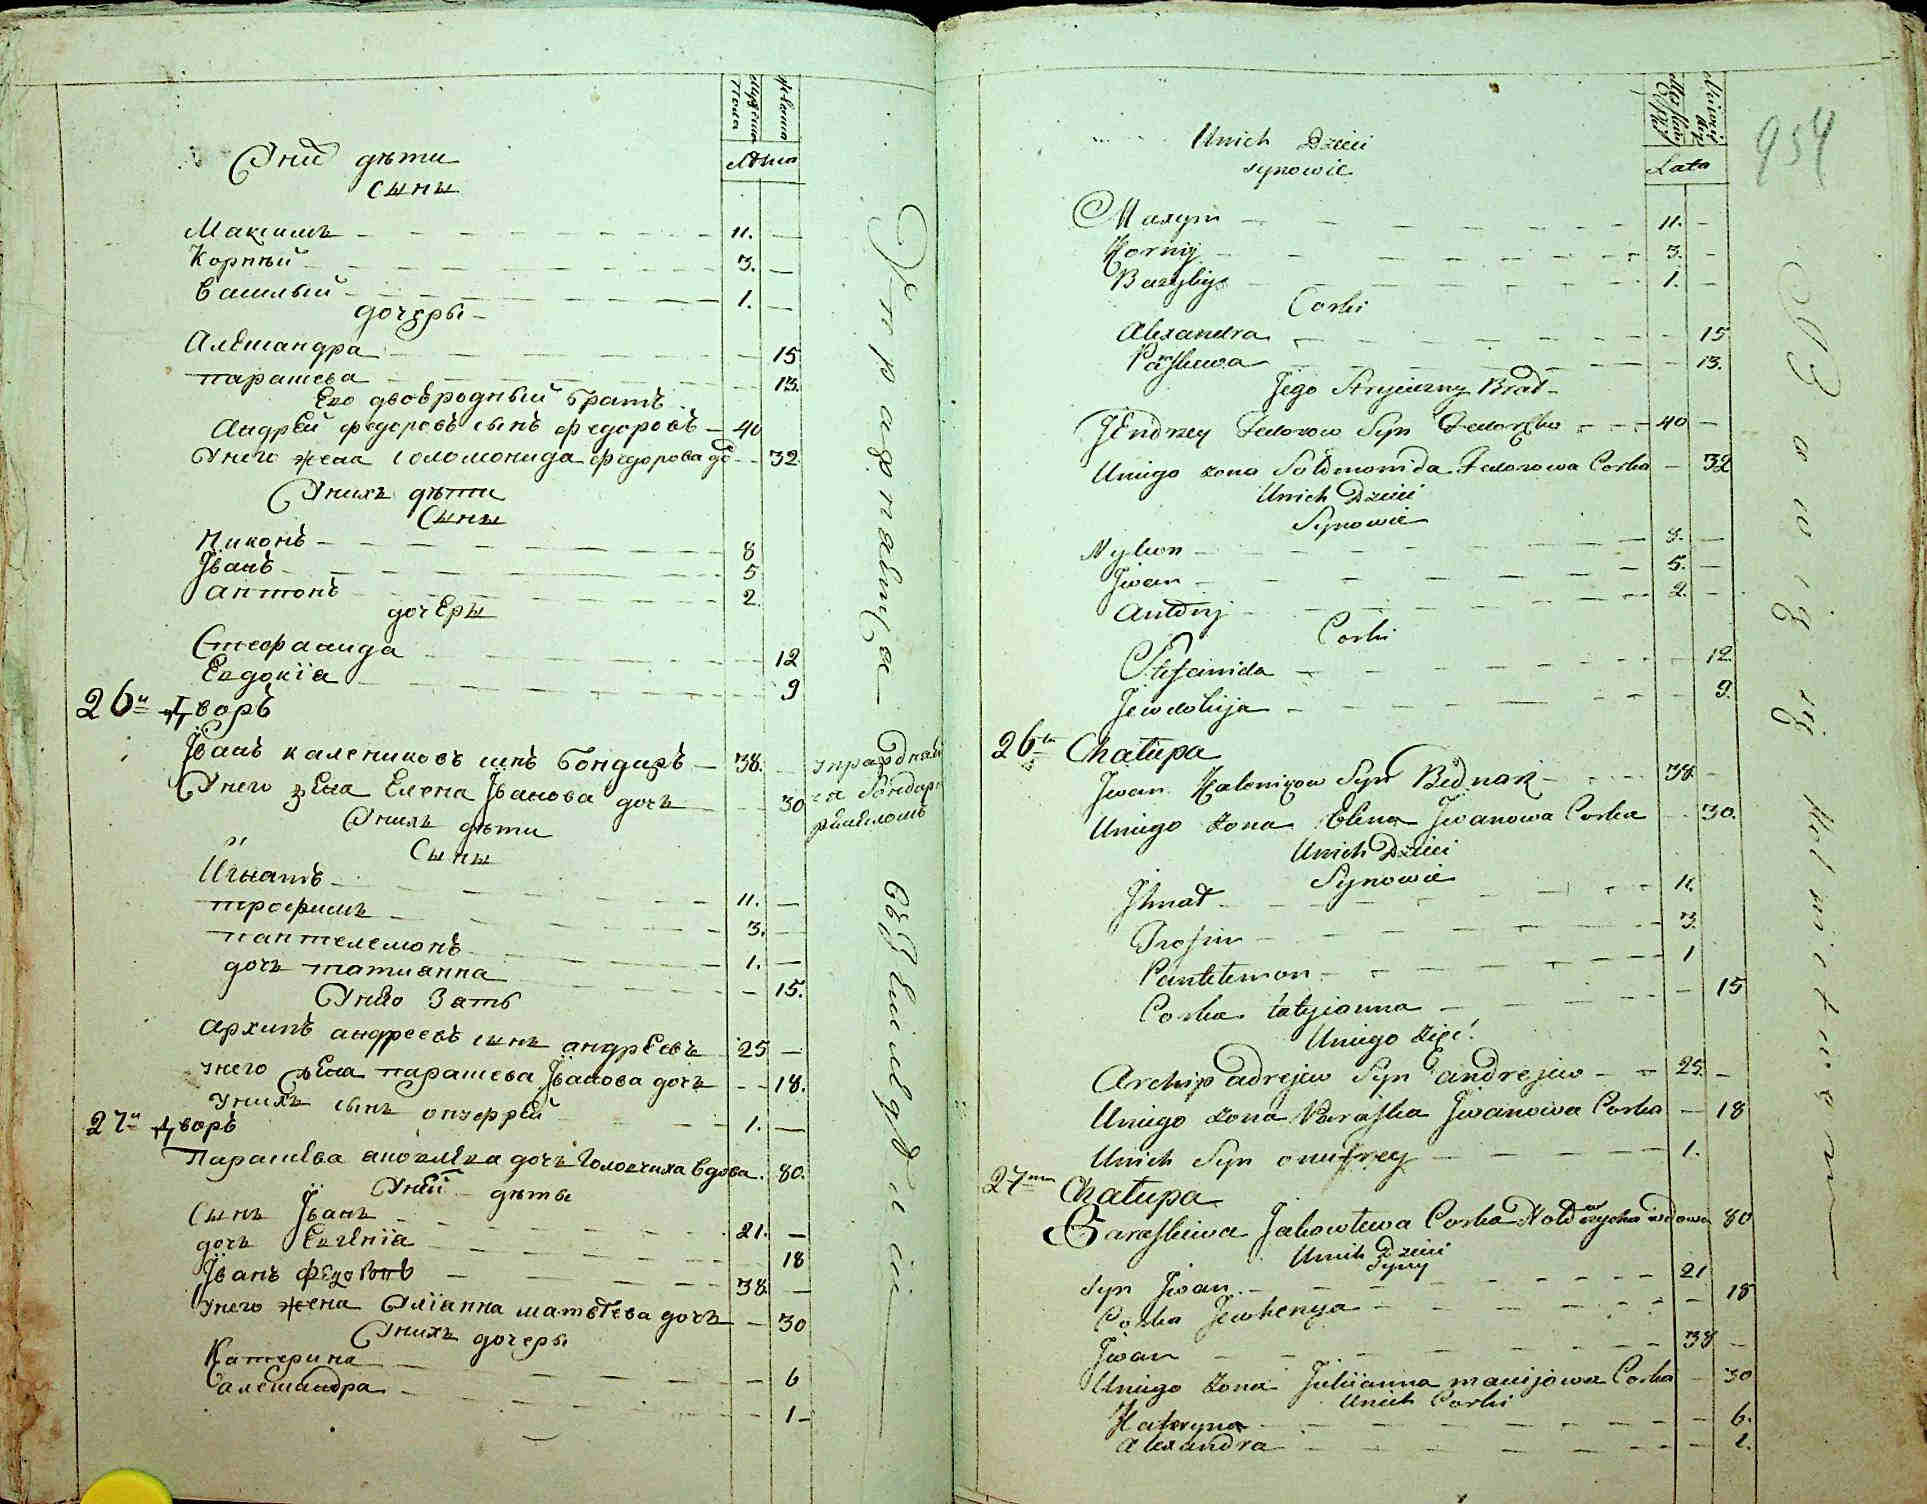 Мужеска Пола
Женска
Лѣта
Уних дѣти
сыны
Максимъ 11.
Корнѣй 3.
Василый 1.
дочеры
Алеѯандра 15
парасѣва 13.
Его двоюродный братъ
Андрей федоровъ сынъ федоровъ 40
Унего жена соломонида федорова до 32
Унихъ дѣти
Сыны
Никонъ 8
Іванъ 5
антонъ 2.
дочеры
Стефанида 12
Евдокїа 9
26й Дворъ
Іванъ калениковъ снъ Бондаръ 38.
Унего жена Елена Іванова дочъ 30
Унихъ дѣти
Сыны
Игнатъ 11.
трофимъ 3.
пантелемонъ 1.
дочъ татианна 15.
Унего Зать
архипъ андреевъ сынъ андреевъ 25
унего жена парасева Іванова дочъ 18.
унихъ сынъ онуфрей 1.
27й Дворъ
Парасѣва яковлева дочъ Головчиха вдова 80.
Уней дѣты
Сынъ Іванъ 21.
дочъ Евгенїа 18
Іванъ федо 38.
Унего жена Улїанна матвѣева дочъ 30
Унихъ дочеры
Катерина 6
алеѯандра 1
Упражнаетца
въ
954
Lata
Unich Dzieci
synowie
Maxym 11.
Korniy 3.
Bazyliy 1.
Corki
Alexandra 15
Paraskewa 13.
Jego Stryieczny Brat
Jendrzey Fedorow Syn Fedorzko 40
Uniego żona Sołomonida Fedorowa Corka 32
Unich Dzieci
Synowie
Nykon 8.
Jwan 5.
Antony 2.
Corki
Stefanida 12.
Jewdokija 9.
26ta Chałupa
Jwan Kalenikow Syn Bednarz 38
Uniego żona Elena Jwanowa Corka 30.
Unich Dzieci
Synowie
Jhnat 11.
Trofim 3.
Pantelemon 1
Corka tatyianna 15
Uniego Zięć
Archip adrejew Syn andrejew 25.
Uniego żona Paraska Jwanowa Corka 18
Unich Syn onufrey 1.
27ma Chałupa
Paraskiewa Jakowlewa Corka Hołowczycha wdowa 80
Unich Dzieci
syny
Syn Jwan 21
Corka Jewhenya 18
Jwan 38
Uniego żona Juliianna macijowa Corka 30
Unich Corki
Kateryna 6.
alexandra 1.